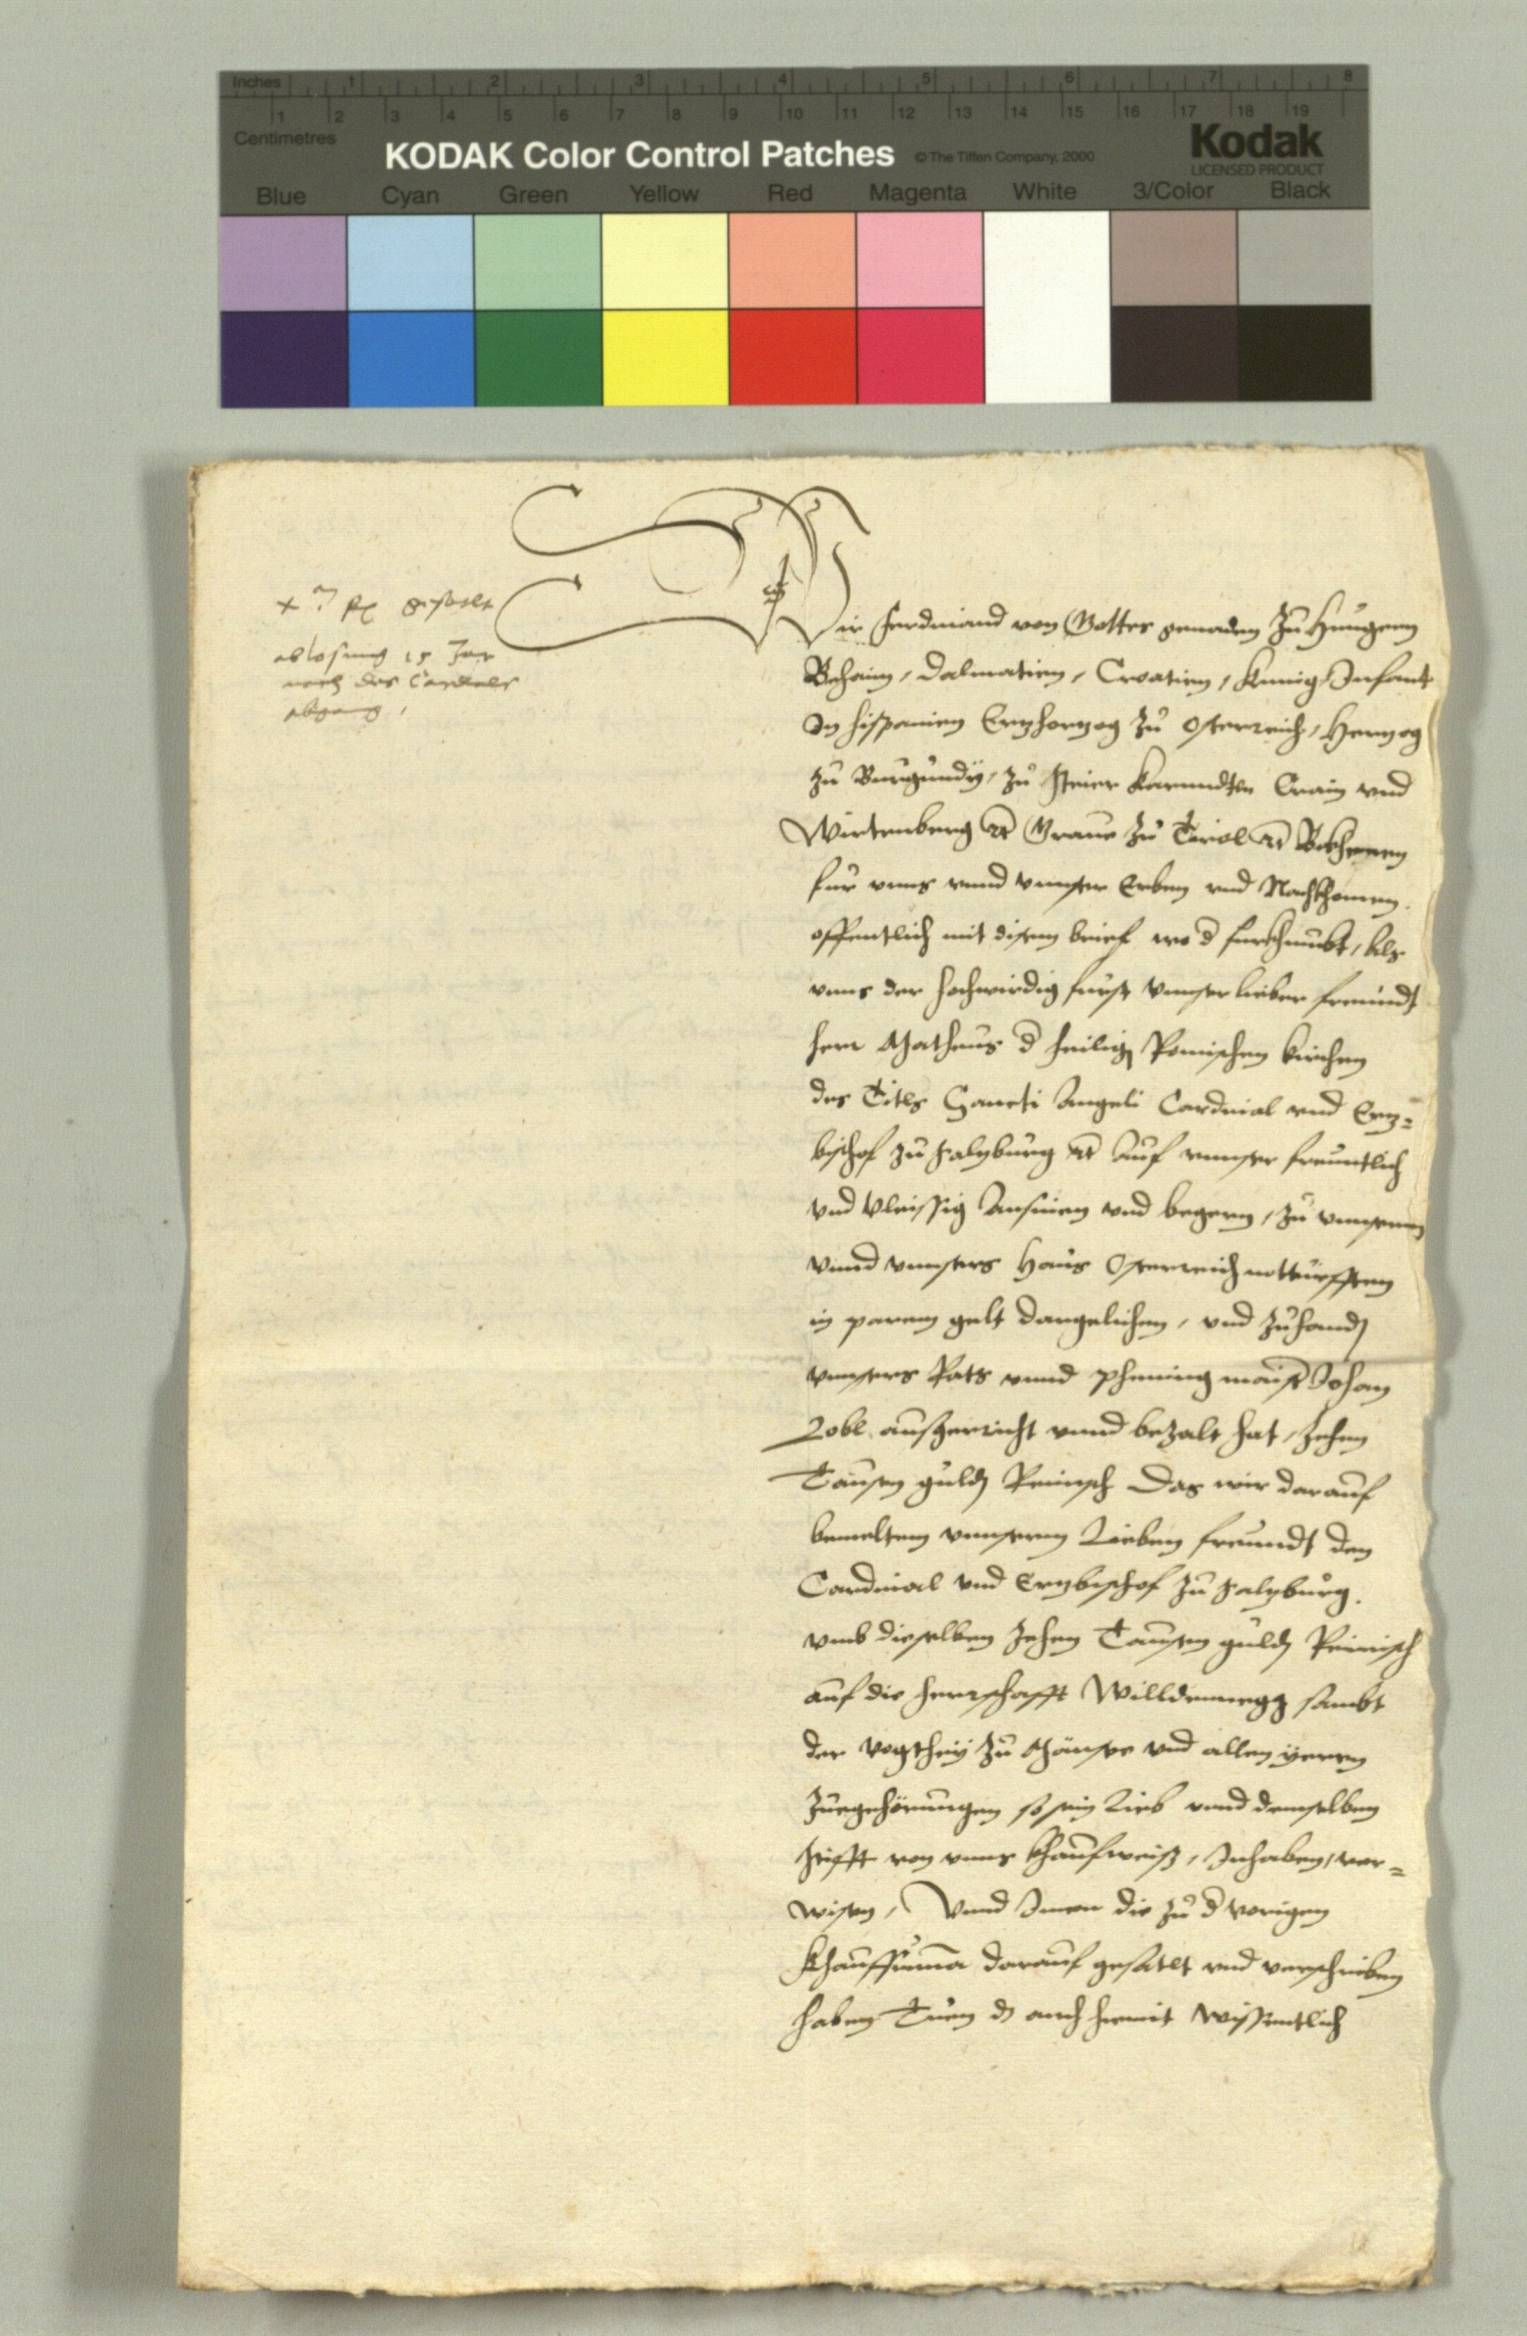 Inches 1 2 3 4 5 6 7 8
1 2 3 4 5 6 7 8 9 10 11 12 13 14 15 16 17 18 19
Centimetres
KODAK Color Control Patches © The Tiffen Company, 2000 Kodak
LICENSED PRODUCT
Blue Cyan Green Yellow Red Magenta White 3/Color Black
ablosung 15 Jar
nach des Cardinals
abgang,
Wir Ferdinand von Gottes genaden zu Hungern
Behaim, Dalmatien, Croatien, Kunig Infant
In Hispanien Ertzhertzog zu Osterreich, Hertzog
zu Burgundj, zu Steier Karnndten Crain vnd
Wirtenberg rc Graue zu Tirol rc Bekhennen
fur vnns vnnd vnnser Erben vnd Nachkhomen.
offentlich mit disem brief vnd thun khundt, Als
vnns der hochwirdig furst vnnser lieber freundt
herr Matheus d heilig Romischen kirchen
des Titls Sancti Angeli Cardinal vnd Ertz=
bischof zu Saltzburg rc Auf vnnser freuntlich
vnd vleissig Ansinen vnd begern, zu vnnsern
vnnd vnnsers Haus Osterreich notturfften
in parem gelt dargelihen, vnd zuhand
vnnsers Rats vnnd phening maist Johan
Zobl ausgericht vnnd bezalt hat, zehen
Tausen guld Reinisch Das wir darauf
bemeltem vnnserm Lieben freundt dem
Cardinal vnd Ertzbischof zu Saltzburg.
vmb dieselben zehen Tausen guld Reinisch
auf die herrschafft Willdennegg sambt
der vogthey zu Mänsee vnd allen yeren
zuegehörungen so sein Lieb vnnd demselben
Stifft von vnns khaufweiss, Innhaben, ver=
wisen, Vnnd Innen die zu d vorigen
khauffsuma darauf geschlagen vnd verschriben
haben Tuen d auch hiemit wissentlich